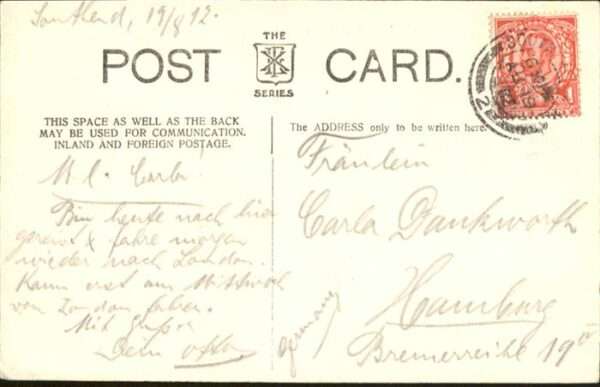 Southend, 19/8 12.
POST CARD.
THE
SERIES
THIS SPACE AS WELL AS THE BACK
MAY BE USED FOR COMMUNICATION.
INLAND AND FOREIGN POSTAGE.
The ADDRESS only to be written here.
M. l. Carla.
Bin heute nach hier
gereist & fahre morgen
wieder nach London.
Kann erst am Mittwoch
von London fahren.
Mit Gruss
Dein Otto
Fräulein
Carla Dankworth
Hamburg
Bremerreihe 19
Germany